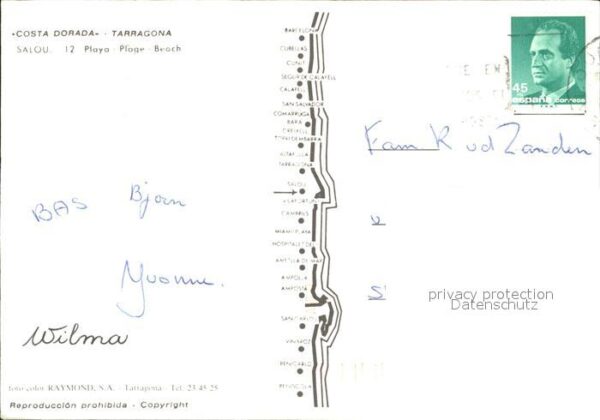 «COSTA DORADA» - TARRAGONA
SALOU. 12 Playa - Plage - Beach
BAS Bjorn
Yvonne.
Wilma
foto color RAYMOND, S.A. - Tarragona - Tel. 23 45 25
Reproducción prohibida - Copyright
BARCELONA
CUBELLAS
CUNIT
SEGUR DE CALAFELL
CALAFELL
SAN SALVADOR
COMARRUGA
BARA
CREIXELL
TORREDEMBARRA
ALTAFULLA
TARRAGONA
SALOU
VILAFORTUNY
CAMBRILS
MIAMI PLAYA
HOSPITALET
AMETLLA DE MAR
AMPOLLA
AMPOSTA
SAN CARLOS
VINAROZ
BENICARLO
PEÑISCOLA
45
españa correos
Fam K vd Zanden
privacy protection
Datenschutz